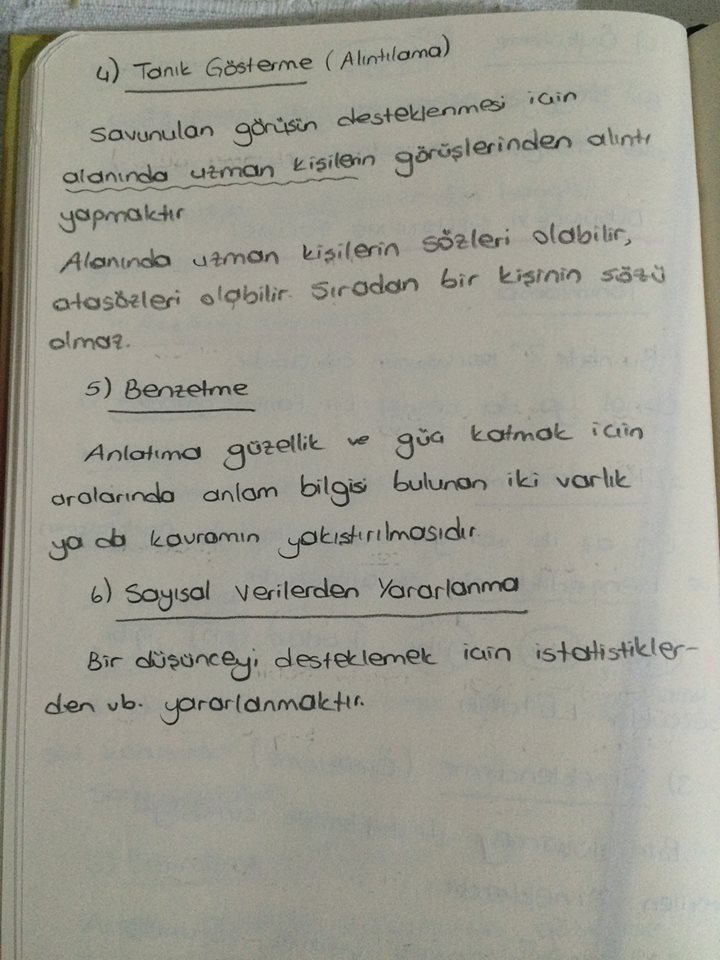 4) Tanık Gösterme (Alıntılama)
Savunulan görüşün desteklenmesi için
alanında uzman kişilerin görüşlerinden alıntı
yapmaktır
Alanında uzman kişilerin sözleri olabilir,
atasözleri olabilir. Sıradan bir kişinin sözü
olmaz.
5) Benzetme
Anlatıma güzellik ve güç katmak için
aralarında anlam bilgisi bulunan iki varlık
ya da kavramın yakıştırılmasıdır.
6) Sayısal Verilerden Yararlanma
Bir düşünceyi desteklemek için istatistikler-
den vb. yararlanmaktır.